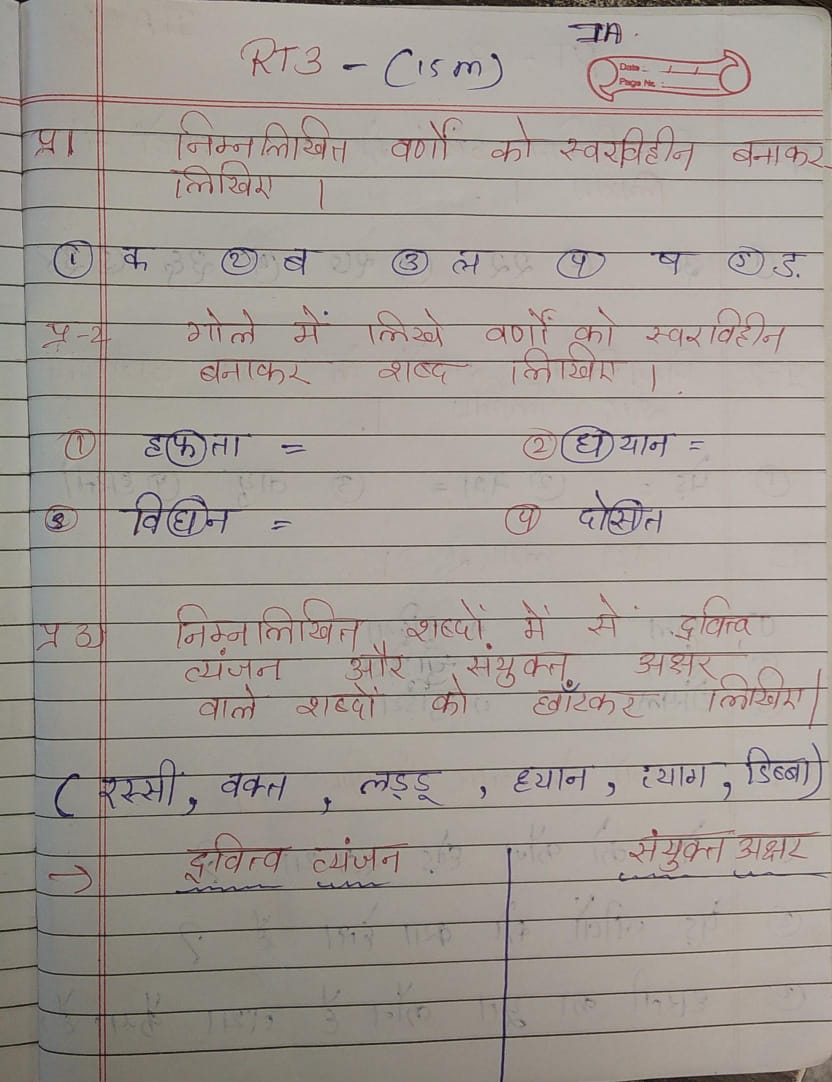 IA.
RT3 - (15 m)
Date :
Page No. :
प्र।    निम्नलिखित वर्णों को स्वरविहीन बनाकर
लिखिए ।
① क ② ब ③ ल ④ ष ⑤ ड.
प्र-2    गोले में लिखे वर्णों को स्वरविहीन
बनाकर शब्द लिखिए ।
① हफता = ② धयान =
③ विघन = ④ दोसत
प्र 3    निम्नलिखित शब्दों में से द्वित्व
व्यंजन और संयुक्त अक्षर
वाले शब्दों को छाँटकर लिखिए|
( रस्सी, वक्त , लड्डू , ध्यान , त्याग , डिब्बा)
→ द्वित्व व्यंजन संयुक्त अक्षर